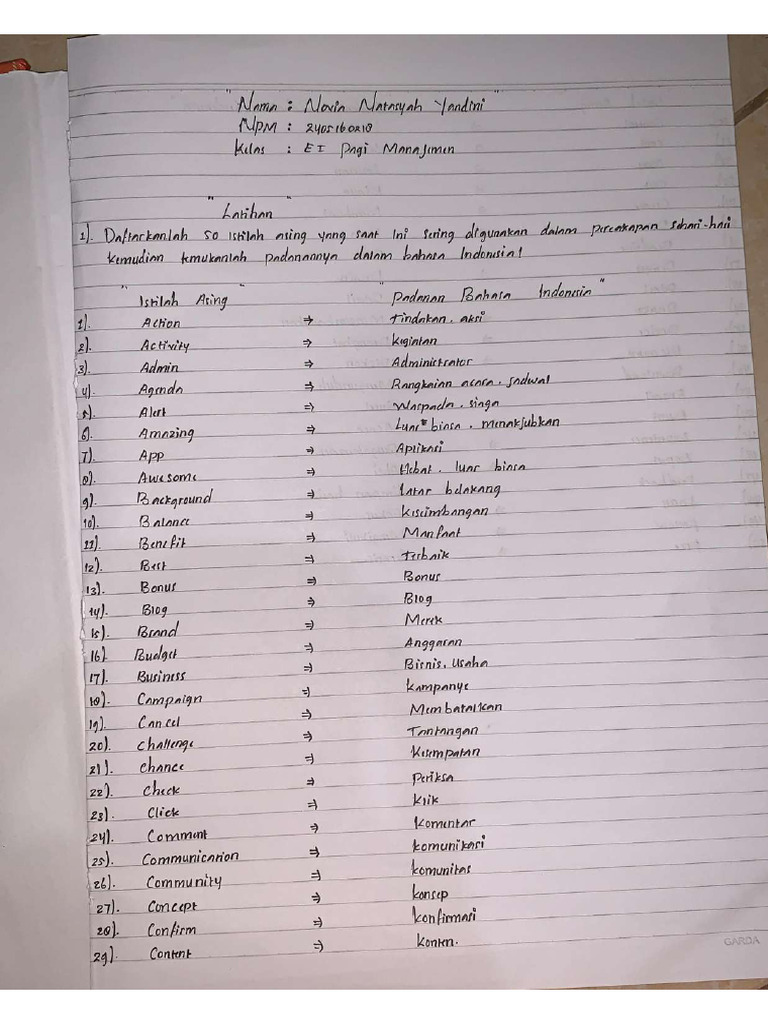 "Nama : Novia Natasyah Yandini"
NPM : 2405160218
Kelas : E1 Pagi Manajemen
"Latihan"
1). Daftarkanlah 50 istilah asing yang saat ini sering digunakan dalam percakapan sehari-hari
kemudian temukanlah padanannya dalam bahasa Indonesia!
"Istilah Asing" "Padanan Bahasa Indonesia"
1). Action => Tindakan, aksi
2). Activity => kegiatan
3). Admin => Administrator
4). Agenda => Rangkaian acara, jadwal
5). Alert => Waspada, siaga
6). Amazing => Luar biasa, menakjubkan
7). App => Aplikasi
8). Awesome => Hebat, luar biasa
9). Background => Latar belakang
10). Balance => Keseimbangan
11). Benefit => Manfaat
12). Best => Terbaik
13). Bonus => Bonus
14). Blog => Blog
15). Brand => Merek
16). Budget => Anggaran
17). Business => Bisnis, Usaha
18). Campaign => kampanye
19). Cancel => Membatalkan
20). Challenge => Tantangan
21). Chance => Kesempatan
22). Check => Periksa
23). Click => Klik
24). Comment => Komentar
25). Communication => komunikasi
26). Community => komunitas
27). Concept => konsep
28). Confirm => konfirmasi
29). Content => konten.
GARDA